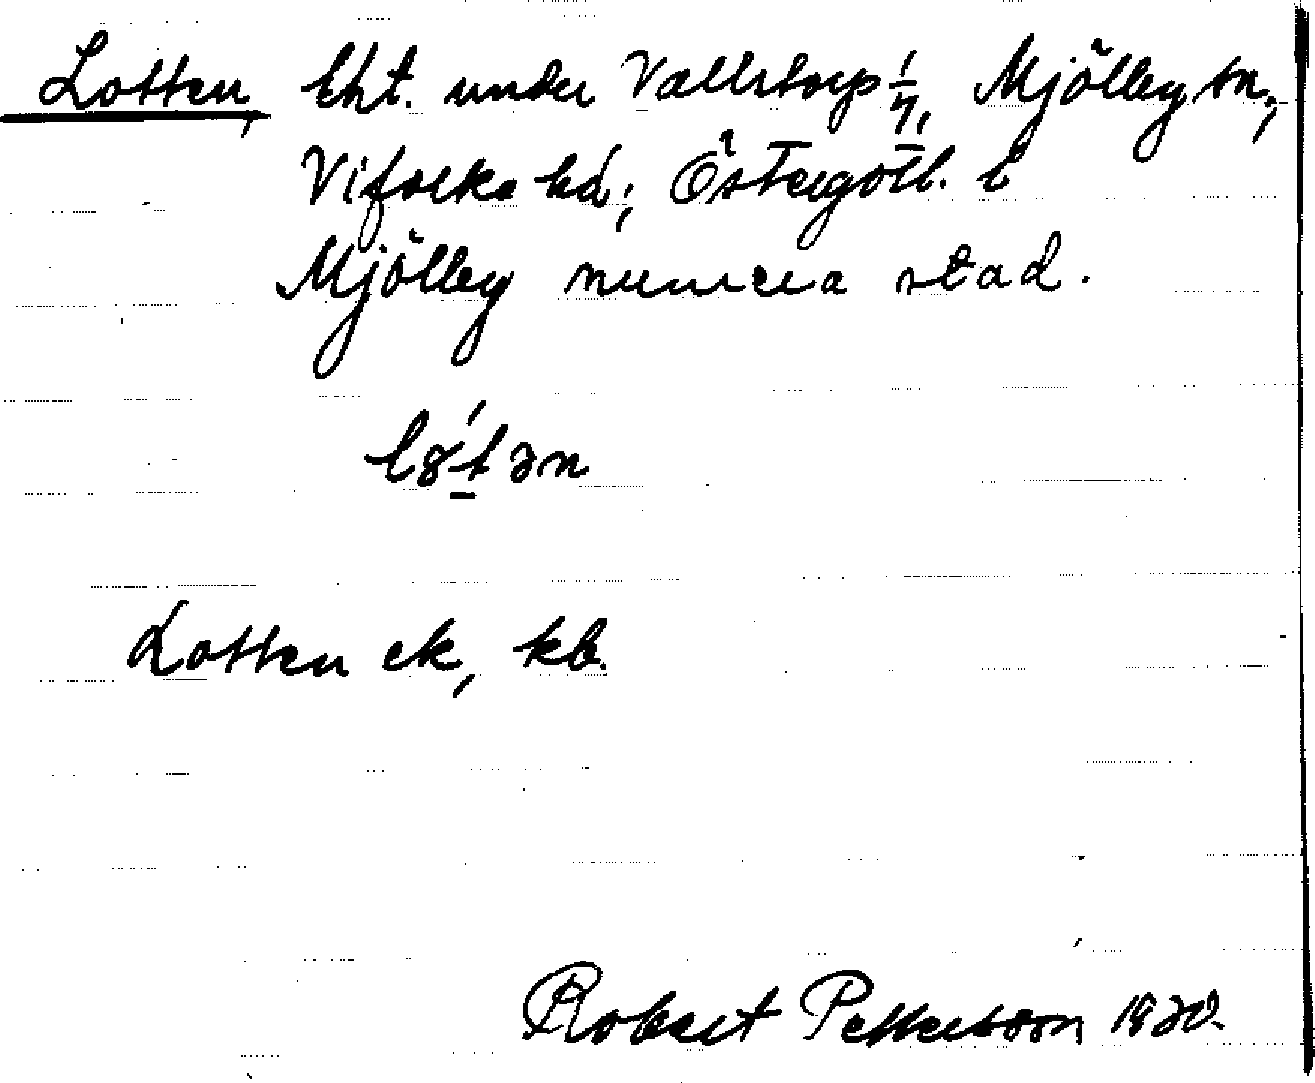 Lotten, lht. under Vallstorp 1/4, Mjölby sn.,
Vifolka hd; Östergötl. l
Mjölby numera stad.
Lotten ek, kb.
Robert Pettersson 1930.